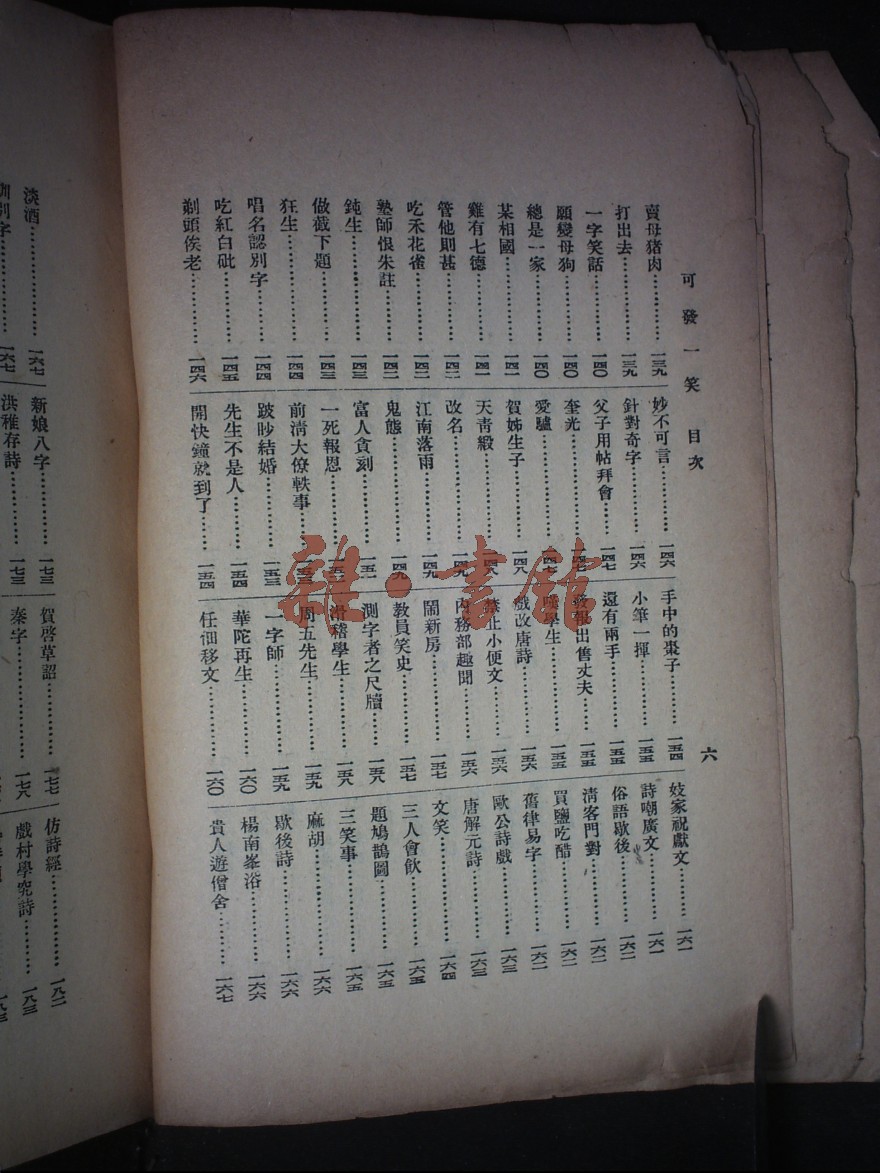 可發一笑 目次
六
賣母猪肉……一三九
打出去……一三九
一字笑話……一四〇
願變母狗……一四〇
總是一家……一四〇
某相國……一四一
雞有七德……一四一
管他則甚……一四二
吃禾花雀……一四二
塾師恨朱註……一四二
鈍生……一四三
做截下題……一四三
狂生……一四四
唱名認別字……一四四
吃紅白砒……一四五
剃頭俟老……一四六
妙不可言……一四六
針對奇字……一四六
父子用帖拜會……一四七
奎光……一四七
愛驢……一四七
賀姊生子……一四八
天青緞……一四八
改名……一四九
江南落雨……一四九
鬼態……一四九
富人貪刻……一五一
一死報恩……一五
前清大僚軼事……一五三
跛眇結婚……一五三
先生不是人……一五四
開快鐘就到了……一五四
手中的棗子……一五四
小筆一揮……一五五
還有兩手……一五五
登報出售丈夫……一五五
嘆學生……一五五
戲改唐詩……一五六
禁止小便文……一五六
內務部趣聞……一五六
鬧新房……一五七
教員笑史……一五七
測字者之尺牘……一五八
滑稽學生……一五八
周五先生……一五九
一字師……一五九
華陀再生……一六〇
任佃移文……一六〇
妓家祝獻文……一六一
詩嘲廣文……一六一
俗語歇後……一六二
清客門對……一六二
買鹽吃醋……一六二
舊律易字……一六二
歐公詩戲……一六三
唐解元詩……一六三
文笑……一六四
三人會飲……一六五
題鳩鵲圖……一六五
三笑事……一六五
麻胡……一六六
歇後詩……一六六
楊南峯浴……一六六
貴人遊僧舍……一六七
淡酒……一六七
別字……一六七
新娘八字……一七三
洪稚存詩……一七三
賀啓草詔……一七七
秦字……一七八
仿詩經……一八二
戲村學究詩……一八三
一八三
雜·書館